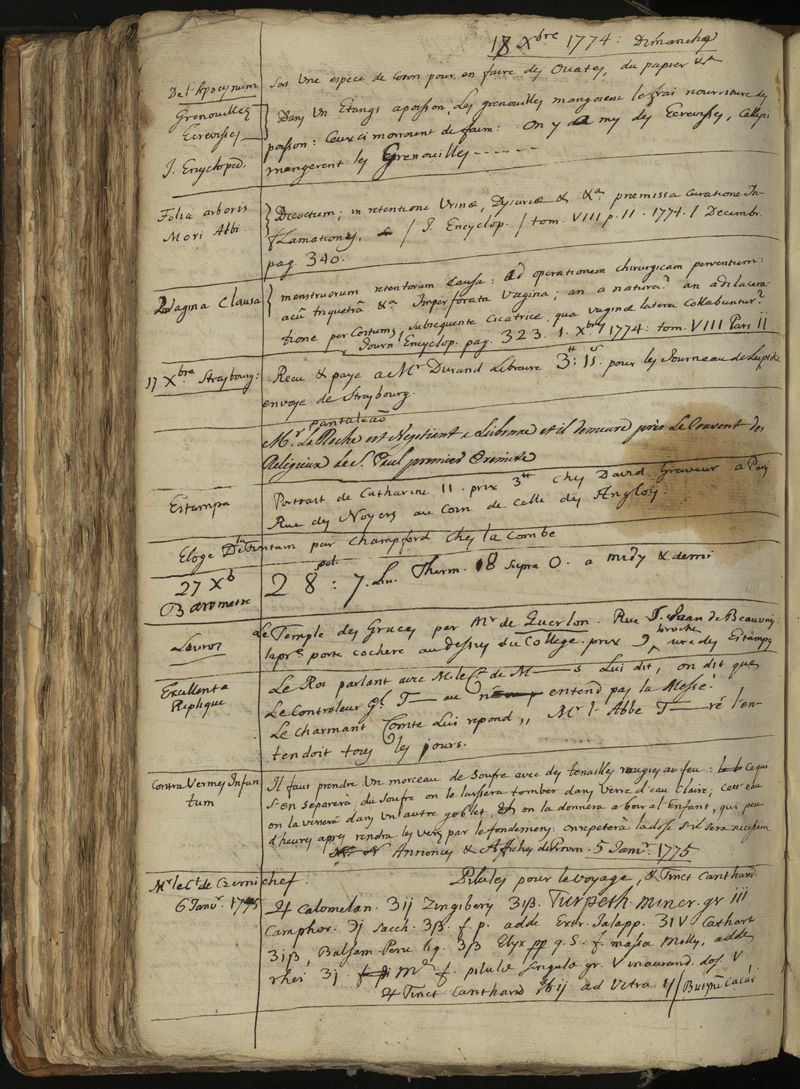 18 Xbre 1774: Dimanche
Del Apocynum
son Une espece de Coton pour en faire des Ouates, du papier &a
Grenouilles
Ecrevisses
J. Encycloped.
Dans Un Etangs apoisson, Les grenouilles mangoient le frai nourriture des
poisson: Ceux ci mouroient de faim: On y a my des Ecrevisses, Celles ci
mangerent les Grenouilles
Folia arboris
Mori Albi
Decoctum; in retentione Urinæ, Dysuriæ & &a premissa curatione In-
flamationis, / J. Encyclop. / tom. VIII p. II. 1774. 1 Decembr.
pag. 340.
Vagina Clausa
menstruorum retentorum Causa: ad operationem chirurgicam perventum:
acu triquetrâ &a Imperforata Vagina; an a natura? an a dilacera
tione per , subsequente Cicatrice, qua vaginæ latera Collabuntur?
Journ. Encyclop. pag. 323. 1. Xbr 1774: tom. VIII Part II
17 Xbre Strasbourg:
Recu & paye a Mr Durand Libraire 3# 15s pour les Journeau de
envoye de Strasbourg.
Pantaleaõ
Mr. La Roche est Negotient a Lisbonne et il demeure près Le Couvent des
Religieux de St. Paul premier Eremite
Estampa
Portrait de Catharine II. prix 3# chez David Graveur a Paris
Rue des Noyers au Coin de Celle des Anglois.
Eloge De la Fontain par Champford Chez la Combe
27 Xb
Barometre
28 pol: 7. Lin. Therm. 18 supra 0. a midy & demi
Livros
Le Temple des Graces par Mr de Querlon. Rue S. Jean de Beauvais
la pre porte cochere au dessus du College. prix 9 broché avec des Estamps
Excellenta
Replique
Le Roi parlant avec M. le Ct de M——s Lui dit, on dit que
Le Controleur Gl T—— au n' entend pas la Messe!
Le Charmant Comte Lui repond ,, Mr l'Abbe T——ré l'en-
tendoit tous les jours.
Contra Vermes Infan
tum
Il faut prendre Un morceau de Soufre avec des tenailles rougies au feu: Ce que
s'en separera du Soufre on le laissera tomber dans verre d'eau Claire; Cette eau
on la versera dans un autre goblet, & on la donnera a boir al Enfant, qui peu
d'heures apres rendra les vers par le fondement. on repetera la dose s'il sera necessaire
Annonces & Affiches de Provin. 5 Janr. 1775
Mr le Ct de Czernichef.
6 Janr. 1775
Pilules pour le voyage, & Tinct Canthard.
♃ Calomelan. ʒij Zingiberis ʒiß. Turpeth. miner. gr iii
Camphor. ℈j Sacch. ʒß. f. p. adde Extr. Jalapp. ʒiv Cathart
ʒiß, Balsam Peru liq. ʒß Elyx pp q. S. f. massa Molly, adde
rhei ʒj. M. f. pilulæ singulæ gr. V inaurand. dos. V
♃ Tinct Cantharid ij ad Vitra ij